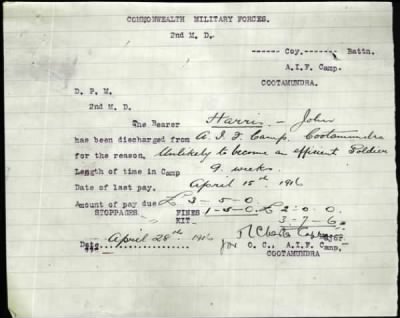 COMMONWEALTH MILITARY FORCES.
2nd M. D.
------ Coy.------- Battn.
A.I.F. Camp.
COOTAMUNDRA.
D. P. M.
2nd M. D.
The Bearer Harris - John
has been discharged from A.I.F Camp. Cootamundra
for the reason, Unlikely to become an efficient Soldier
Length of time in Camp 9 weeks.
Date of last pay. April 15th 1916
Amount of pay due £ 3-5-0.
STOPPAGES FINES 1-5-0. £ 2:0:0.
KIT 3-7-6
Date April 28th 1916
for O. C., A.I.F. Camp,
COOTAMUNDRA